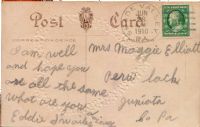 Post Card
JUN
1910
I am well
and hope you
are all the same
what are you
Eddie
Mrs Maggie Elliott
Peru Lack
Juniata
Co Pa